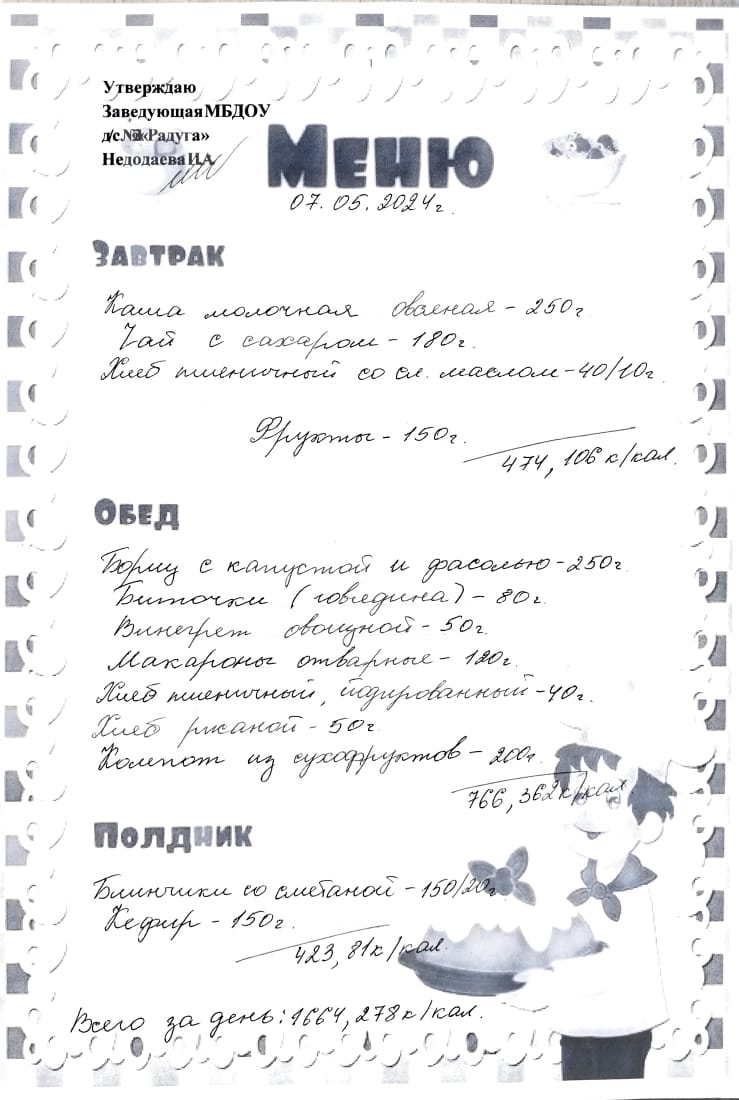 Утверждаю
Заведующая МБДОУ
д/с № «Радуга»
Недодаева И.А.
Меню
07.05.2024г.
Завтрак
Каша молочная овсяная - 250г.
Чай с сахаром - 180г.
Хлеб пшеничный со сл. маслом - 40/10г.
Фрукты - 150г.
474, 106 к/кал.
Обед
Борщ с капустой и фасолью - 250г.
Биточки (говядина) - 80г.
Винегрет овощной - 50г.
Макароны отварные - 120г.
Хлеб пшеничный, йодированный - 40г.
Хлеб ржаной - 50г.
Компот из сухофруктов - 200г.
766, 362 к/кал.
Полдник
Блинчики со сметаной - 150/20г.
Кефир - 150г.
423, 81 к/кал.
Всего за день: 1664, 278 к/кал.